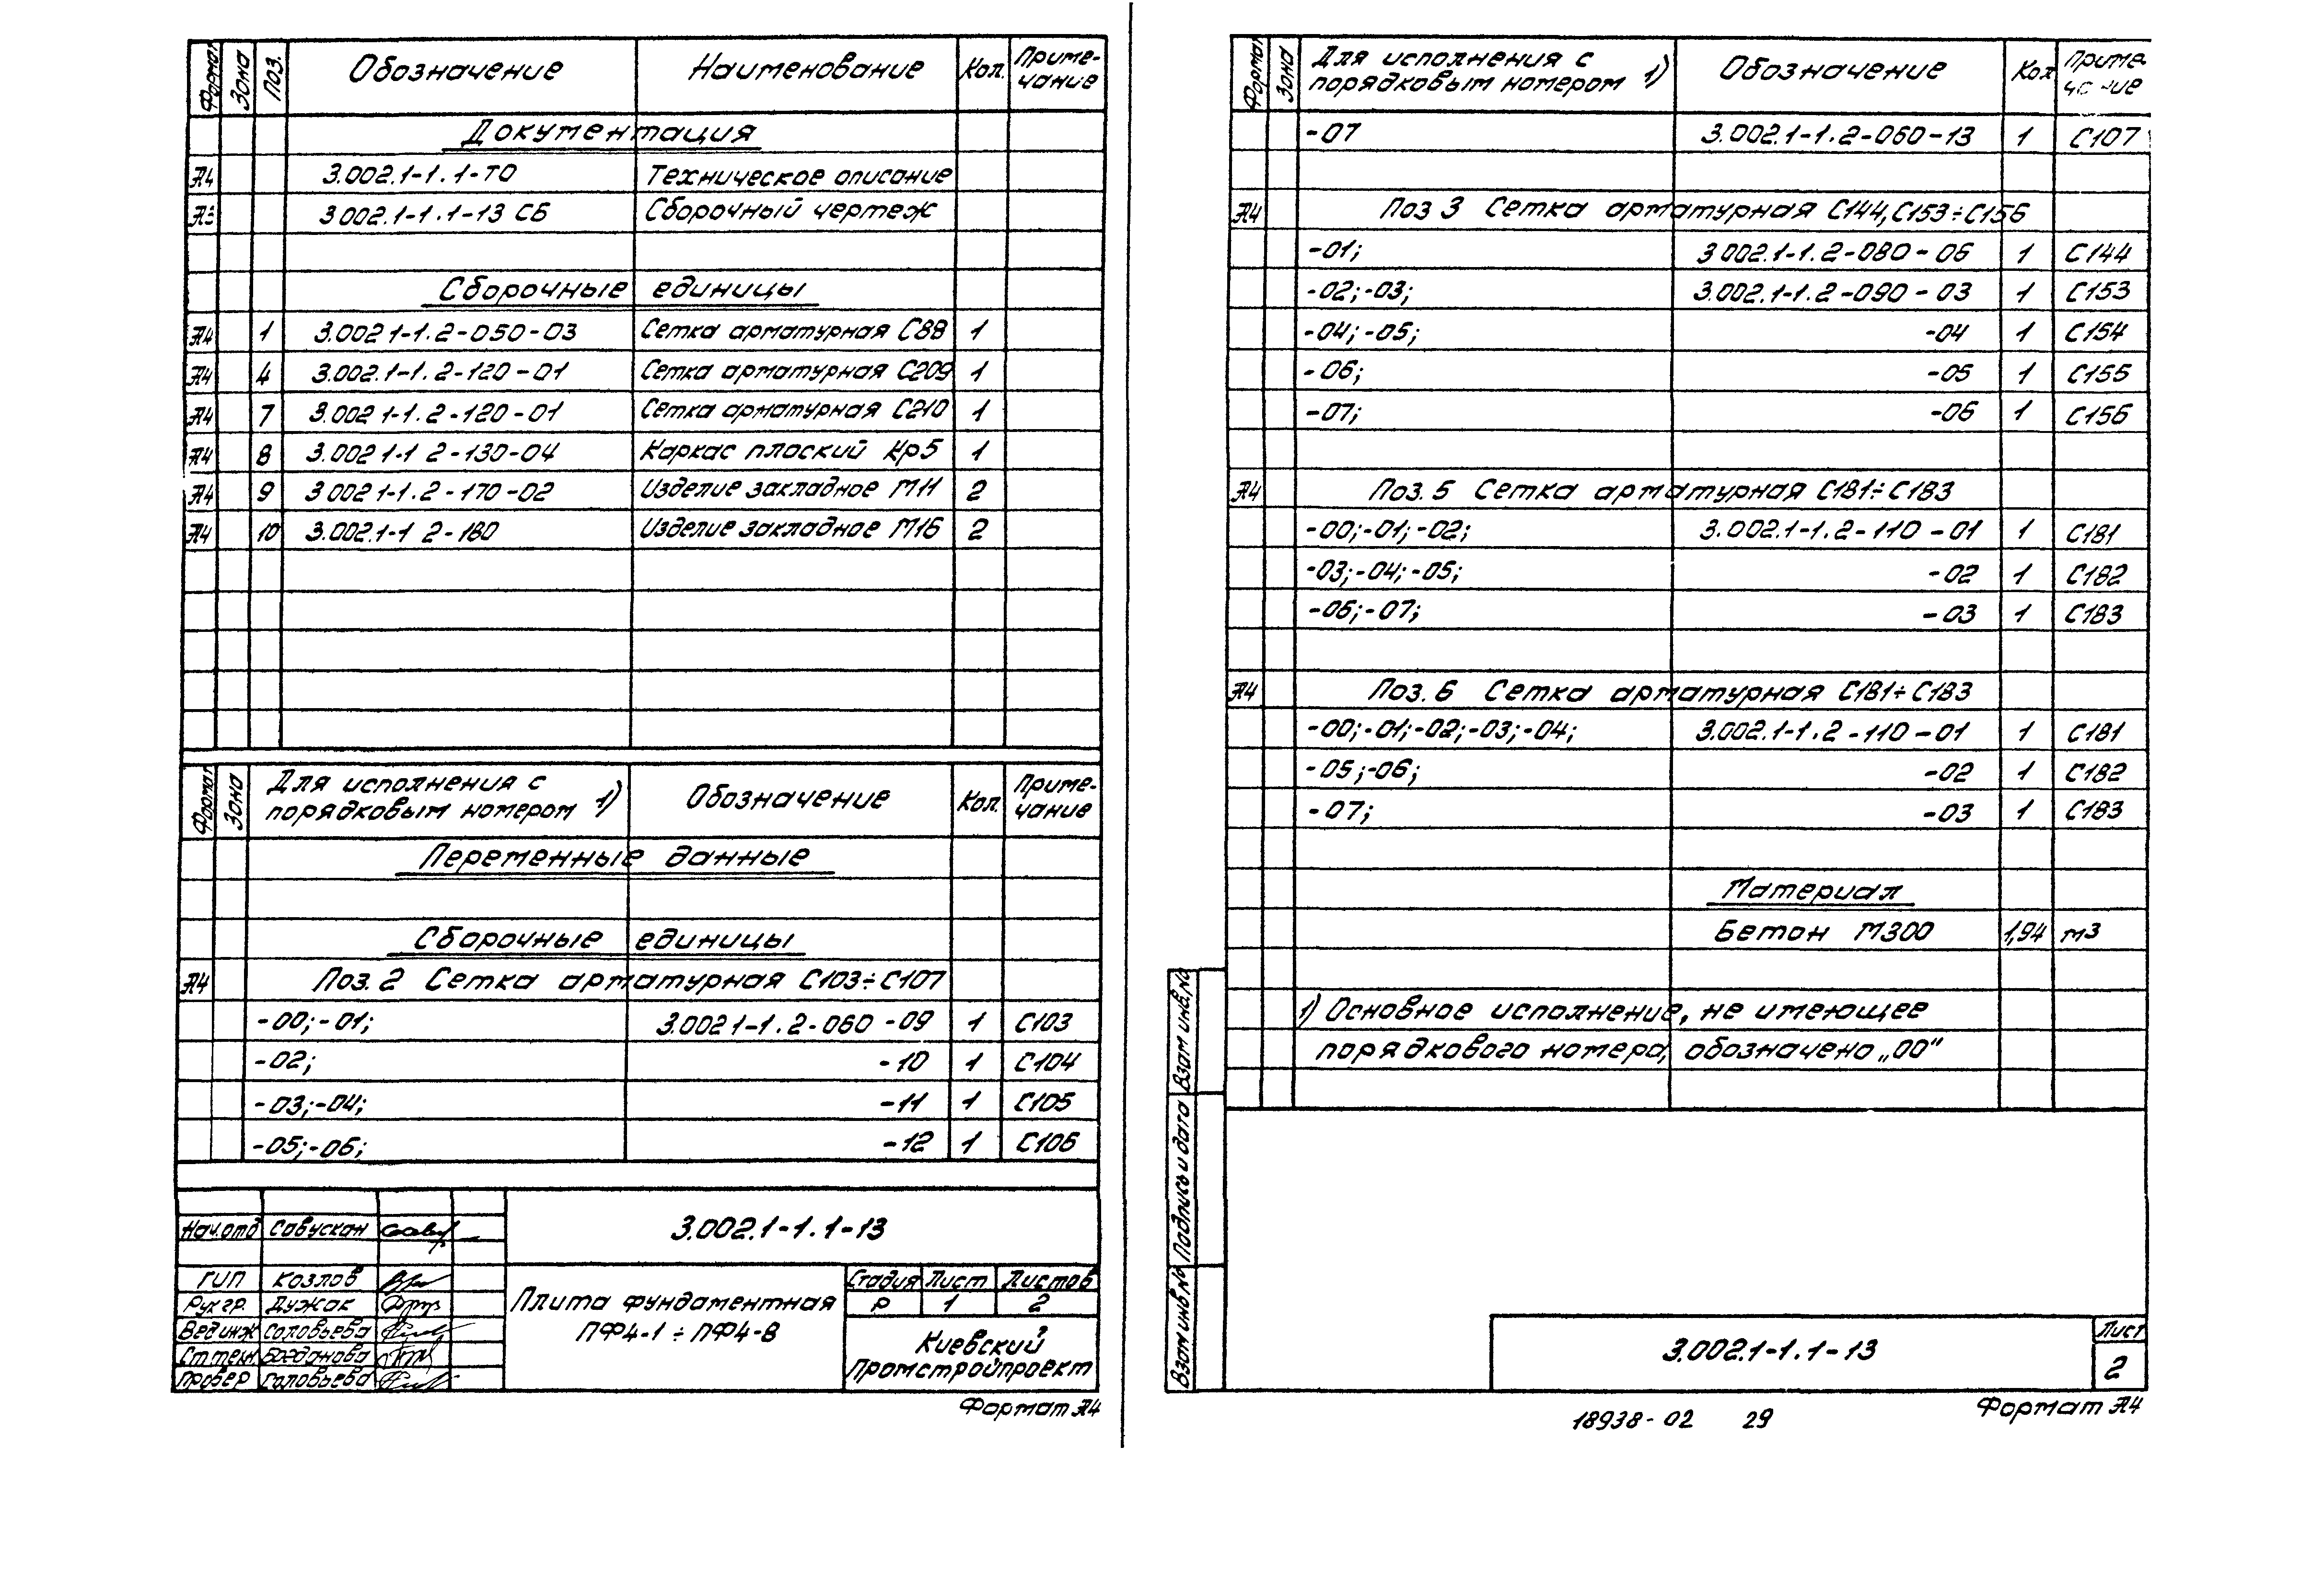 Формат Зона Поз. Обозначение Наименование Кол. Приме-
чание
Документация
А4 3.002.1-1.1-ТО Техническое описание
А3 3.002.1-1.1-13 СБ Сборочный чертеж
Сборочные единицы
А4 1 3.002 1-1.2-050-03 Сетка арматурная С88 1
А4 4 3.002.1-1.2-120-01 Сетка арматурная С209 1
А4 7 3.002 1-1.2-120-01 Сетка арматурная С210 1
А4 8 3.002 1-1 2-130-04 Каркас плоский Кр5 1
А4 9 3 002 1-1.2-170-02 Изделие закладное М11 2
А4 10 3.002.1-1 2-180 Изделие закладное М16 2
Формат Зона Для исполнения с
порядковым номером 1) Обозначение Кол. Приме-
чание
Переменные данные
Сборочные единицы
А4 Поз. 2 Сетка арматурная С103÷С107
-00;-01; 3.002 1-1.2-060-09 1 С103
-02; -10 1 С104
-03;-04; -11 1 С105
-05;-06; -12 1 С106
Нач.отд Савускан
ГИП Козлов
Рук гр. Дужак
Вед инж Соловьева
Ст техн Богданова
Провер Соловьева
3.002.1-1.1-13
Плита фундаментная
ПФ4-1 ÷ ПФ4-8
Стадия Лист Листов
Р 1 2
Киевский
Промстройпроект
Формат А4
Формат Зона Для исполнения с
порядковым номером 1) Обозначение Кол Приме-
чание
-07 3.002.1-1.2-060-13 1 С107
А4 Поз 3 Сетка арматурная С144, С153÷С156
-01; 3.002.1-1.2-080-06 1 С144
-02;-03; 3.002.1-1.2-090-03 1 С153
-04;-05; -04 1 С154
-06; -05 1 С155
-07; -06 1 С156
А4 Поз. 5 Сетка арматурная С181÷С183
-00;-01;-02; 3.002.1-1.2-110-01 1 С181
-03;-04;-05; -02 1 С182
-06;-07; -03 1 С183
А4 Поз. 6 Сетка арматурная С181÷С183
-00;-01;-02;-03;-04; 3.002.1-1.2-110-01 1 С181
-05;-06; -02 1 С182
-07; -03 1 С183
Материал
Бетон М300 1,94 м3
1) Основное исполнение, не имеющее
порядкового номера, обозначено „00"
Взам инв.№
Подпись и дата
Взам инв №
3.002.1-1.1-13
Лист
2
18938-02 29
Формат А4